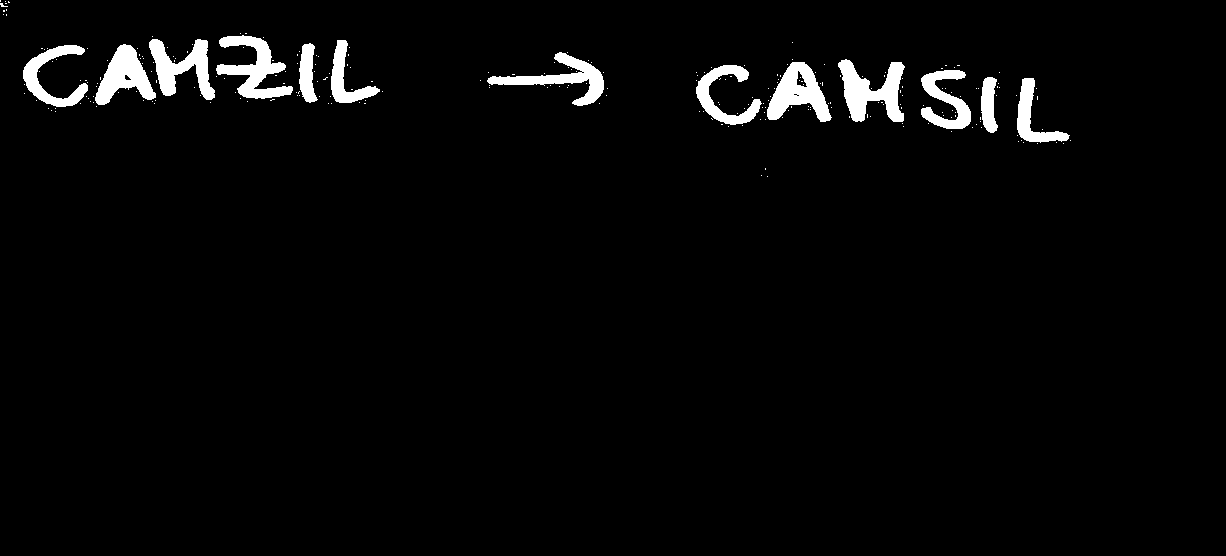 CAMZIL → CAMSIL